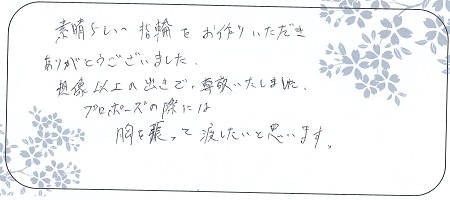 素晴らしい指輪をお作りいただき
ありがとうございました。
想像以上の出来で、尊敬いたしました。
プロポーズの際には
胸を張って渡したいと思います。